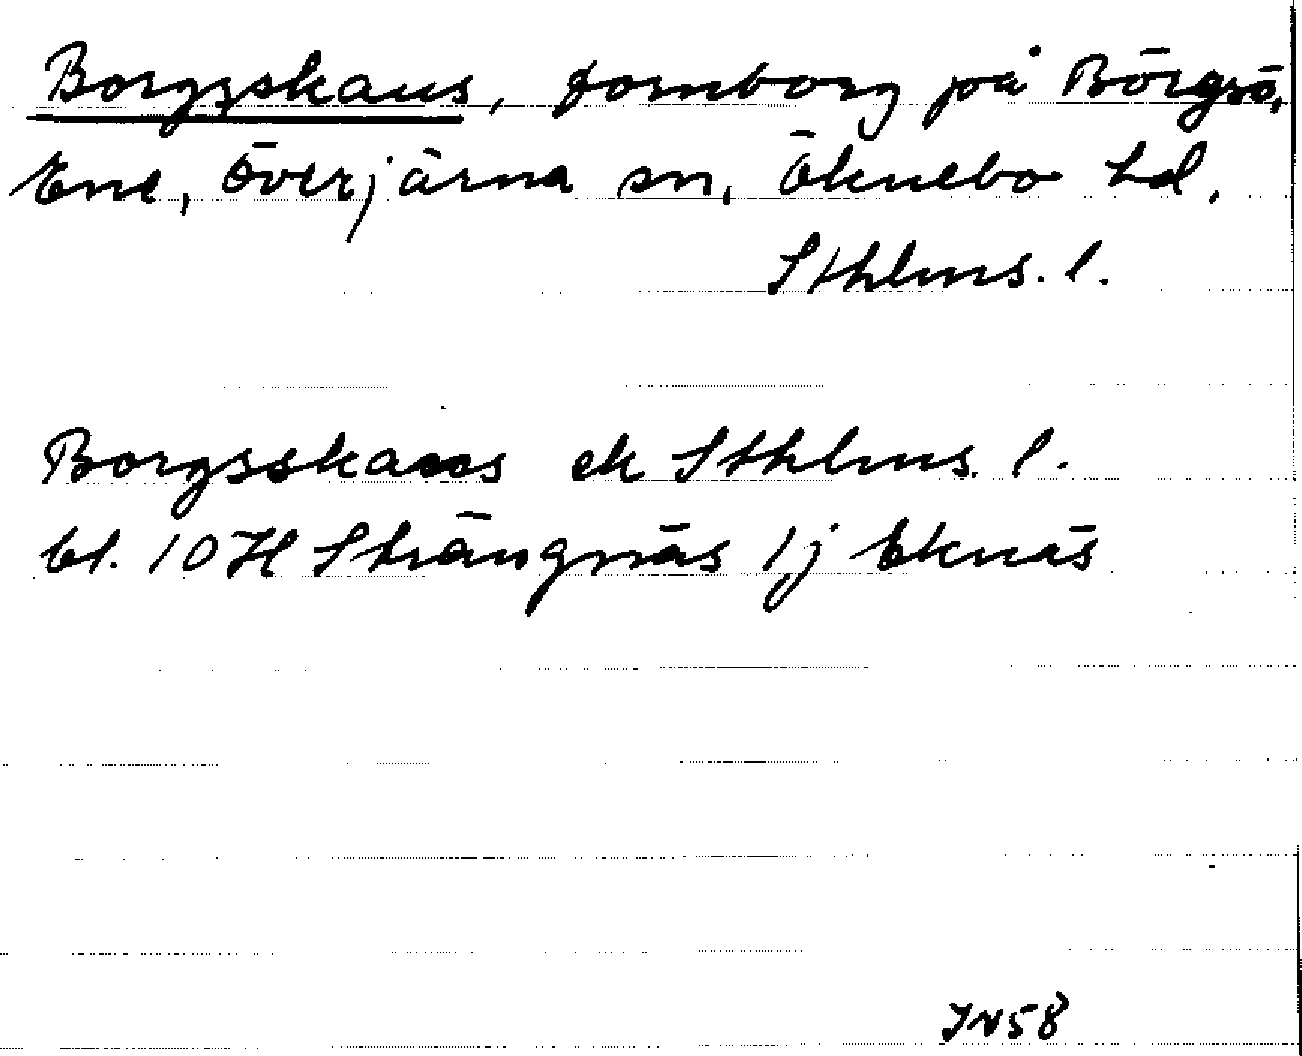 Borgsskans, fornborg på Börgsö,
Ene, Överjärna sn, Öknebo hd.
Sthlms. l.
Borgsskans ek Sthlms. l.
bl. 10H Strängnäs 1j Eknäs
JN58